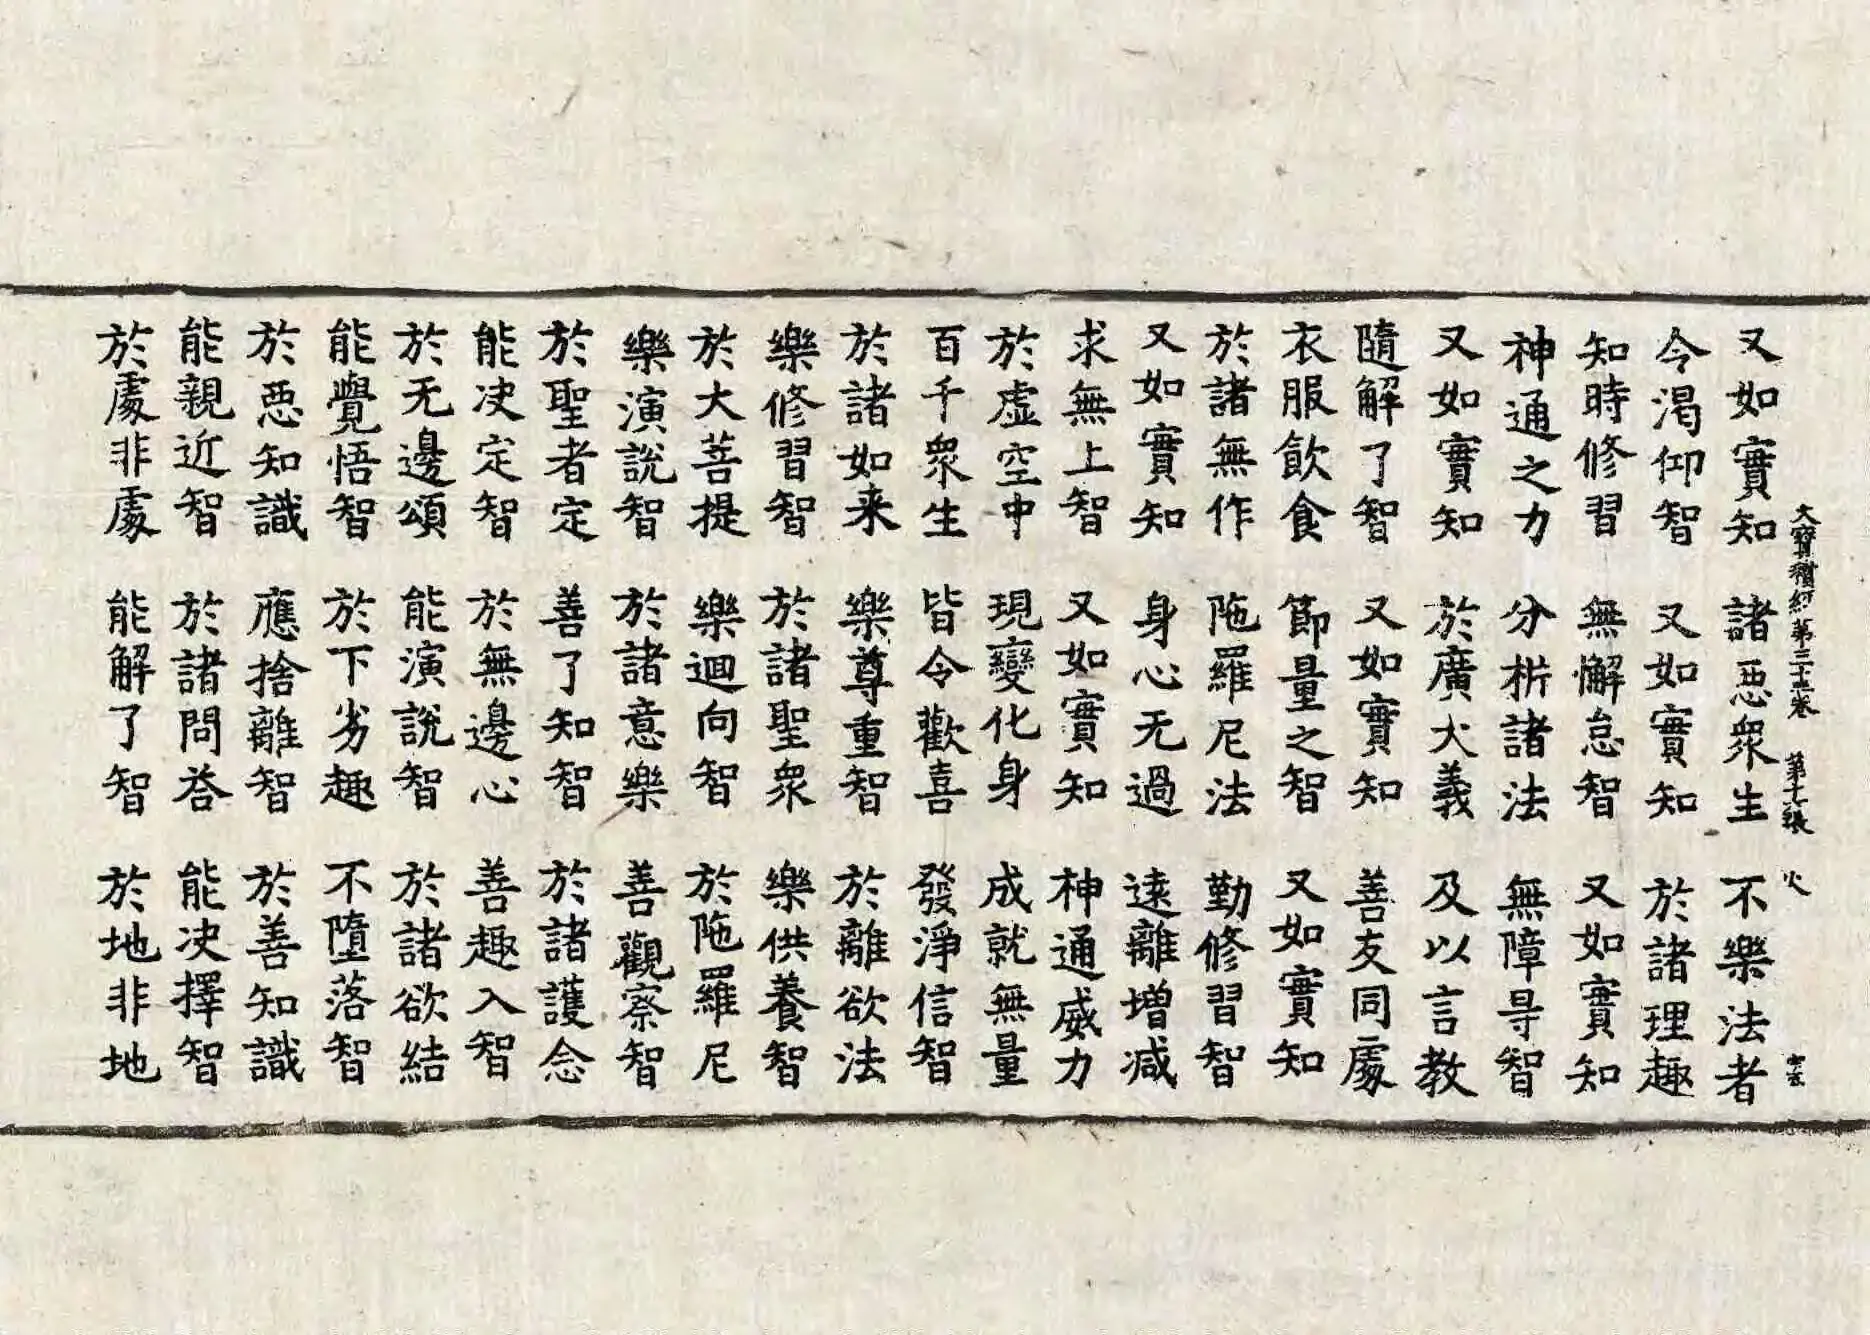 大寶積經第三十五卷 第七張 火
又如實知 諸惡眾生 不樂法者
令渴仰智 又如實知 於諸理趣
知時修習 無懈怠智 又如實知
神通之力 分析諸法 無障㝵智
又如實知 於廣大義 及以言教
隨解了智 又如實知 善友同處
衣服飲食 節量之智 又如實知
於諸無作 陁羅尼法 勤修習智
又如實知 身心无過 遠離增減
求無上智 又如實知 神通威力
於虛空中 現變化身 成就無量
百千眾生 皆令歡喜 發淨信智
於諸如来 樂尊重智 於離欲法
樂修習智 於諸聖眾 樂供養智
於大菩提 樂迴向智 於陁羅尼
樂演說智 於諸意樂 善觀察智
於聖者定 善了知智 於諸護念
能決定智 於無邊心 善趣入智
於无邊頌 能演說智 於諸欲結
能覺悟智 於下劣趣 不墮落智
於惡知識 應捨離智 於善知識
能親近智 於諸問荅 能决擇智
於處非處 能解了智 於地非地